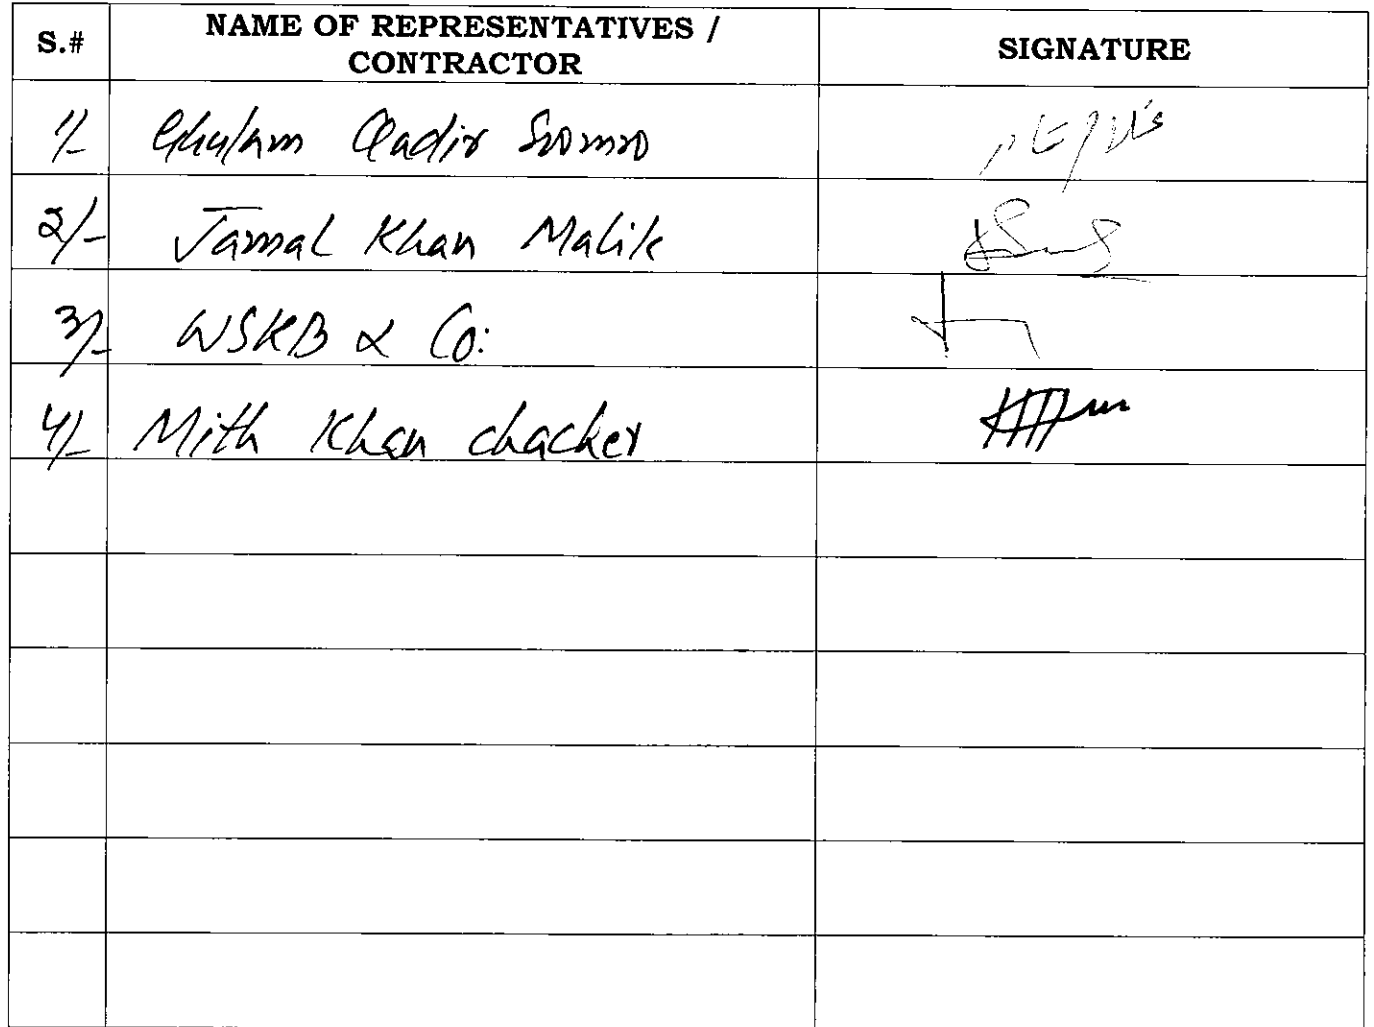 S.# NAME OF REPRESENTATIVES / CONTRACTOR SIGNATURE
1/- Ghulam Qadir Soomro
2/- Jamal Khan Malik
3/- WSKB & Co:
4/- Mith Khan chacker